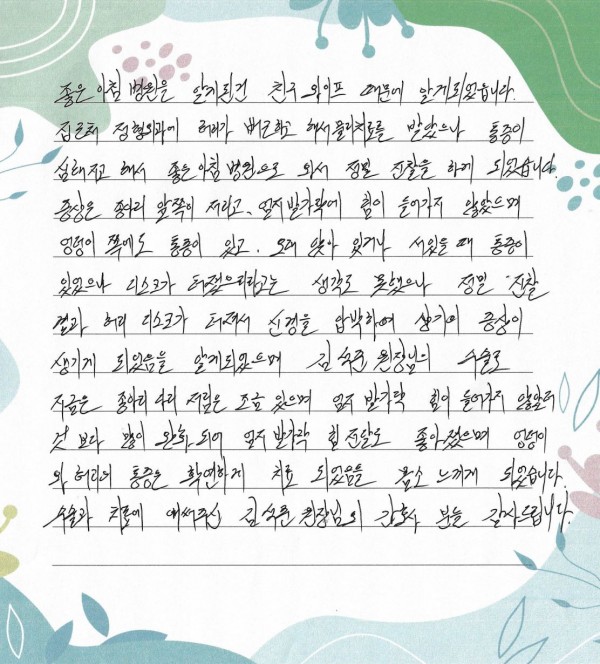 좋은아침 병원을 알게된건 친구 와이프 때문에 알게되었습니다.
집근처 정형외과에 허리가 뻐근하고 해서 물리치료를 받았으나 통증이
심해지고 해서 좋은아침병원으로 와서 정밀 진찰을 하게 되었습니다
증상은 종아리 앞쪽이 저리고, 엄지발가락에 힘이 들어가지 않았으며
엉덩이 쪽에도 통증이 있고, 오래 앉아 있거나 서있을 때 통증이
있었으나 디스크가 터졌으리라고는 생각도 못했으나 정밀 진찰
결과 허리 디스크가 터져서 신경을 압박하여 생기는 증상이
생기게 되었음을 알게되었으며 김 원장님의 수술로
지금은 종아리 다리 저림은 조금 있으며 엄지 발가락 힘이 들어가지 않았던
것 보다 많이 완화 되어 엄지 발가락 힘 전달도 좋아졌으며 엉덩이
와 허리의 통증은 확연하게 치료 되었음을 몸소 느끼게 되었습니다.
수술과 치료에 애써주신 김 원장님외 간호사 분들 감사드립니다.